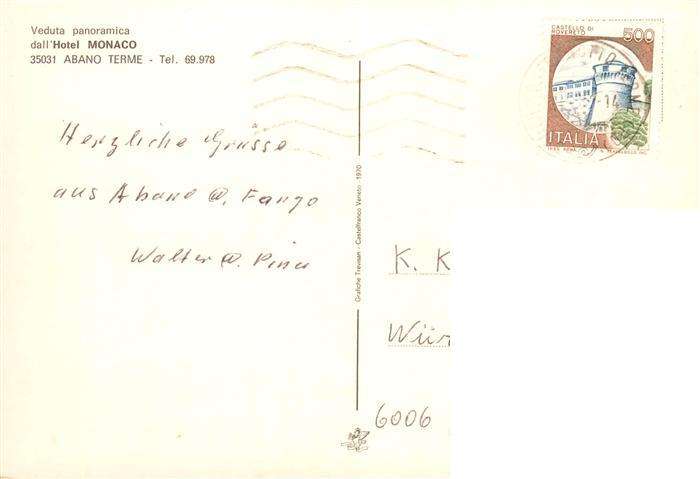 Veduta panoramica
dall'Hotel MONACO
35031 ABANO TERME - Tel. 69.978
CASTELLO DI
ROVERETO
500
ITALIA
Herzliche Grüsse
aus Abano @. Fango
Walter @. Pina
Grafiche Trevisan - Castelfranco Veneto - 1970
K. K
Wür
6006